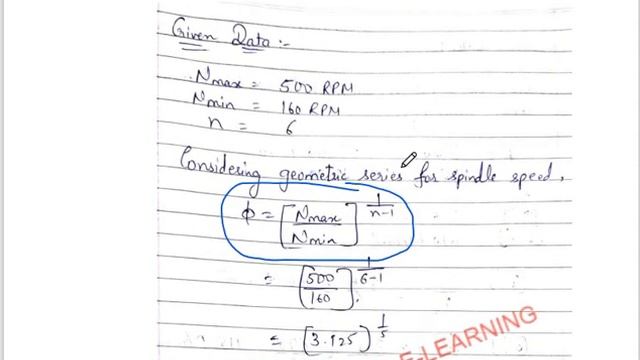 Given Data :-
Nmax = 500 RPM
Nmin = 160 RPM
n = 6
Considering geometric series for spindle speed,
ϕ = [Nmax/Nmin]^(1/(n-1))
= [500/160]^(1/(6-1)).
= [3.125]^(1/5)
E-LEARNING